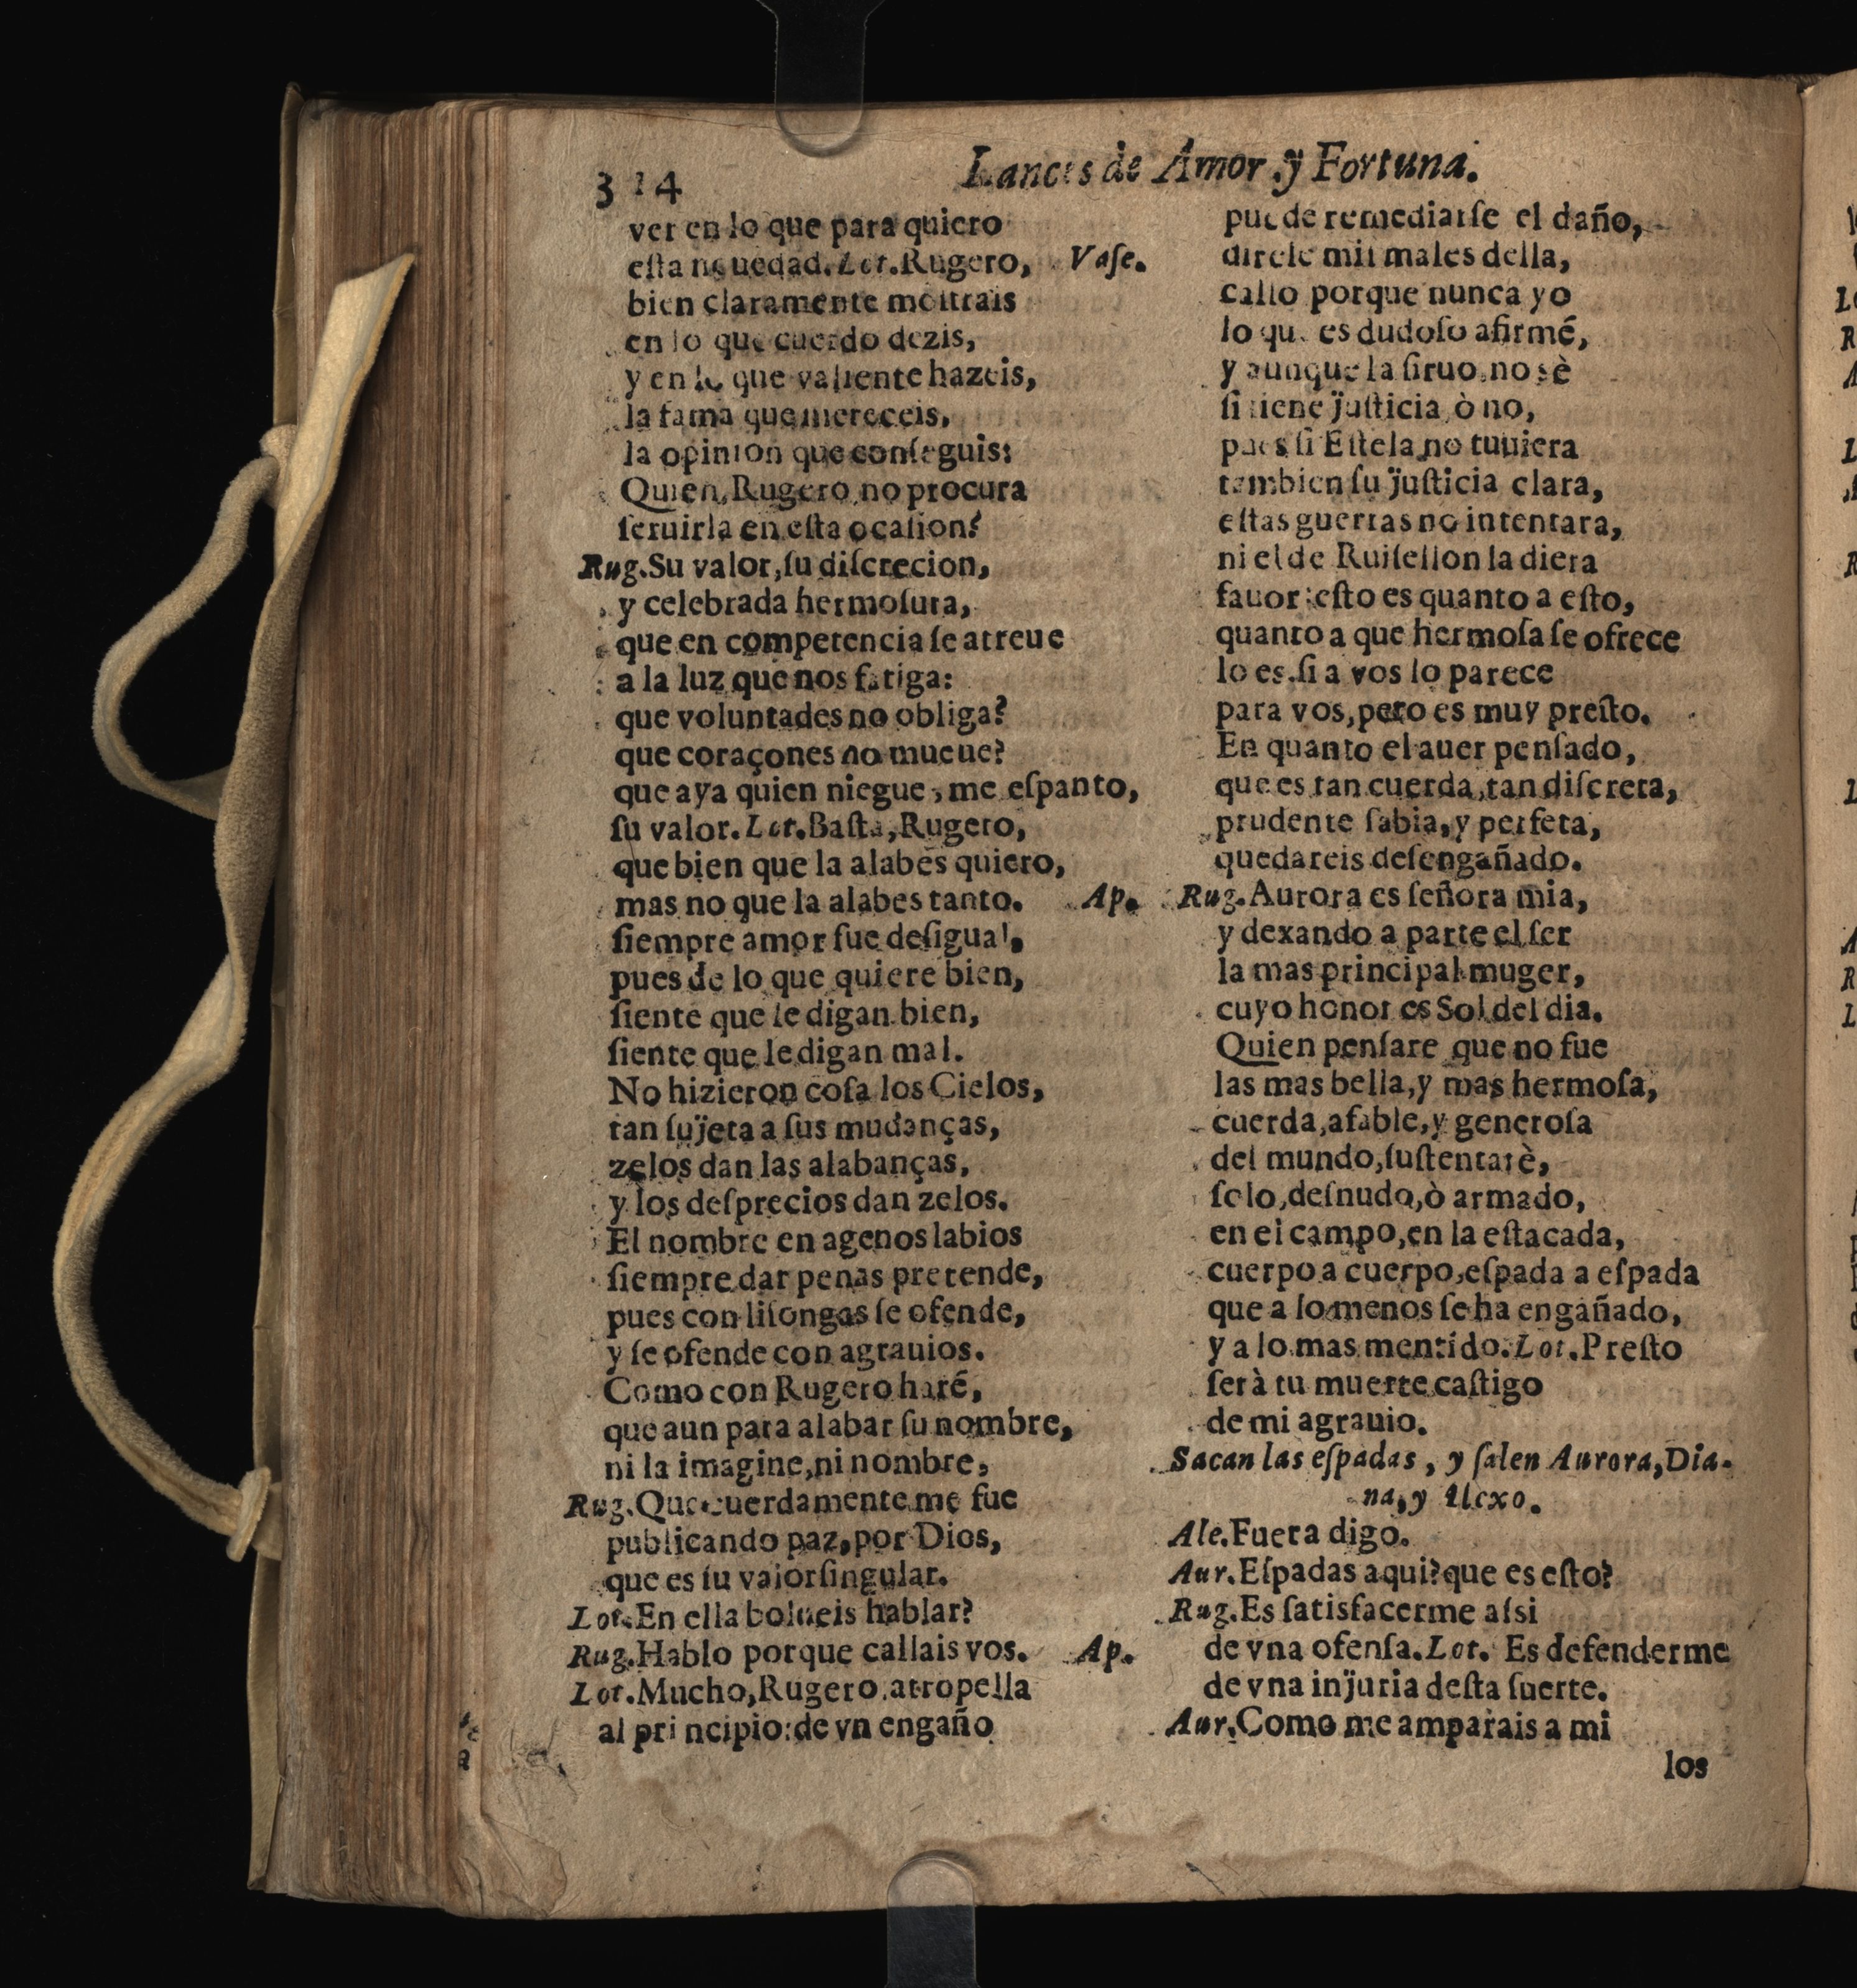 314
Lances de Amor y Fortuna.
ver en lo que para quiero
esta nouedad. Lot. Rugero, Vaſe.
bien claramente moſtrais
en lo que cuerdo dezis,
y en lo que valiente hazeis,
la fama que mereceis,
la opinion que conſeguis:
Quien, Rugero, no procura
ſeruirla en eſta ocaſion?
Rug. Su valor, ſu diſcrecion,
y celebrada hermoſura,
que en competencia ſe atreue
a la luz que nos fatiga:
que voluntades no obliga?
que coraçones no mueue?
que aya quien niegue, me eſpanto,
ſu valor. Lot. Baſta, Rugero,
que bien que la alabes quiero,
mas no que la alabes tanto. Ap.
ſiempre amor fue deſigual,
pues de lo que quiere bien,
ſiente que le digan bien,
ſiente que le digan mal.
No hizieron coſa los Cielos,
tan ſujeta a ſus mudanças,
zelos dan las alabanças,
y los deſprecios dan zelos.
El nombre en agenos labios
ſiempre dar penas pretende,
pues con liſongas ſe ofende,
y ſe ofende con agrauios.
Como con Rugero haré,
que aun para alabar ſu nombre,
ni la imagine, ni nombre,
Rug. Que cuerdamente me fue
publicando paz, por Dios,
que es ſu valor ſingular.
Lot. En ella bolueis hablar?
Rug. Hablo porque callais vos. Ap.
Lot. Mucho, Rugero, atropella
al principio: de vn engaño
puede remediarſe el daño,
direle mil males della,
callo porque nunca yo
lo que es dudoſo afirmé,
y aunque la ſiruo, no sè
ſi tiene juſticia, ò no,
pues ſi Eſtela no tuuiera
tambien ſu juſticia clara,
eſtas guerras no intentara,
ni el de Ruiſellon la diera
fauor: eſto es quanto a eſto,
quanto a que hermoſa ſe ofrece
lo es, ſi a vos lo parece
para vos, pero es muy preſto.
En quanto el auer penſado,
que es tan cuerda, tan diſcreta,
prudente ſabia, y perfeta,
quedareis deſengañado.
Rug. Aurora es ſeñora mia,
y dexando a parte el ſer
la mas principal muger,
cuyo honor es Sol del dia.
Quien penſare que no fue
las mas bella, y mas hermoſa,
cuerda, afable, y generoſa
del mundo, ſuſtentarè,
ſolo, deſnudo, ò armado,
en el campo, en la eſtacada,
cuerpo a cuerpo, eſpada a eſpada
que a lo menos ſe ha engañado,
y a lo mas mentido. Lot. Preſto
ſerà tu muerte caſtigo
de mi agrauio.
Sacan las eſpadas, y ſalen Aurora, Dia-
na, y Alexo.
Ale. Fuera digo.
Aur. Eſpadas aqui? que es eſto?
Rug. Es ſatisfacerme aſsi
de vna ofenſa. Lot. Es defenderme
de vna injuria deſta ſuerte.
Aur. Como me amparais a mi
los